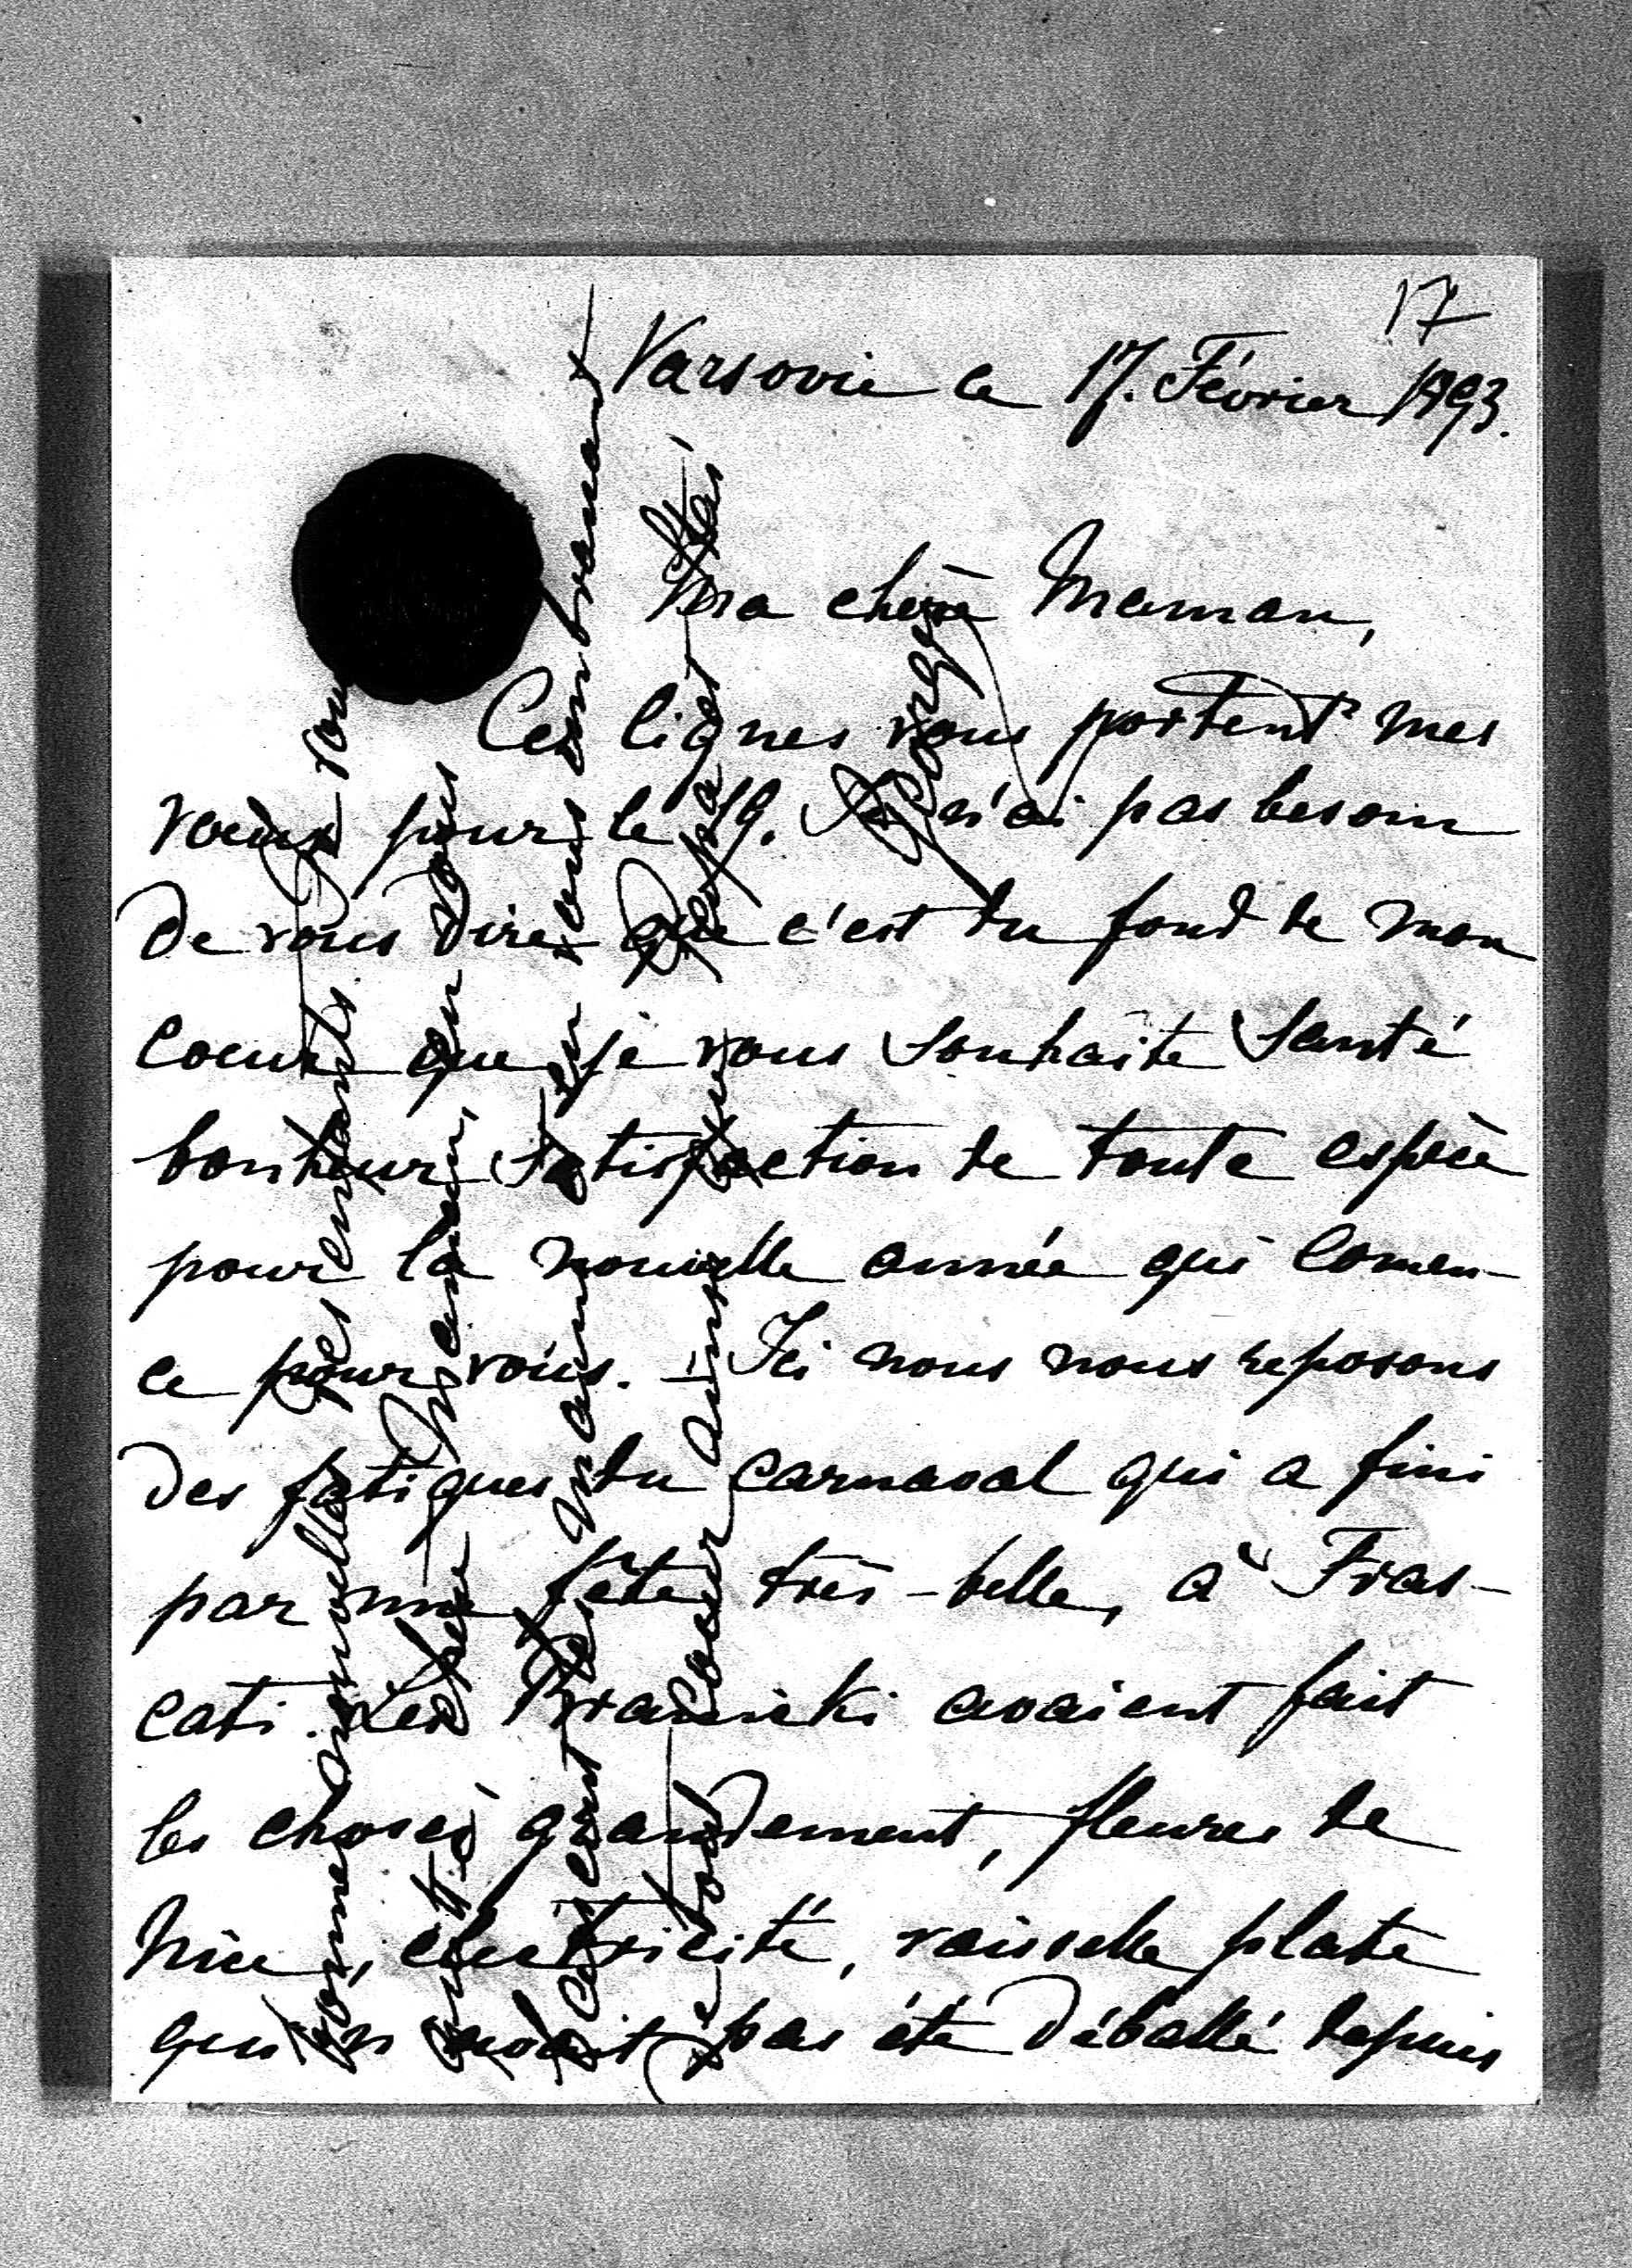 17
Varsovie ce 17. Février 1893.
Ma chère Maman,
Ces lignes vous portent mes
voeux pour le 19. Je n'ai pas besoin
de vous dire que c'est du fond de mon
coeur que je vous souhaite santé
bonheur satisfaction de toute espèce
pour la nouvelle année qui comen-
ce pour vous. – Ici nous nous reposons
des fatigues du carnaval qui a fini
par une fête très-belle, à Fras-
cati. Les Branicki avaient fait
les choses grandement, fleures de
Nice, électricité, vaisselle plate
qui n'avait pas été déballé depuis
bonnes nouvelles des enfants. Vous
Maman, que vous
Maman en vous embrassant
de tout coeur ainsi que Papa
Georges